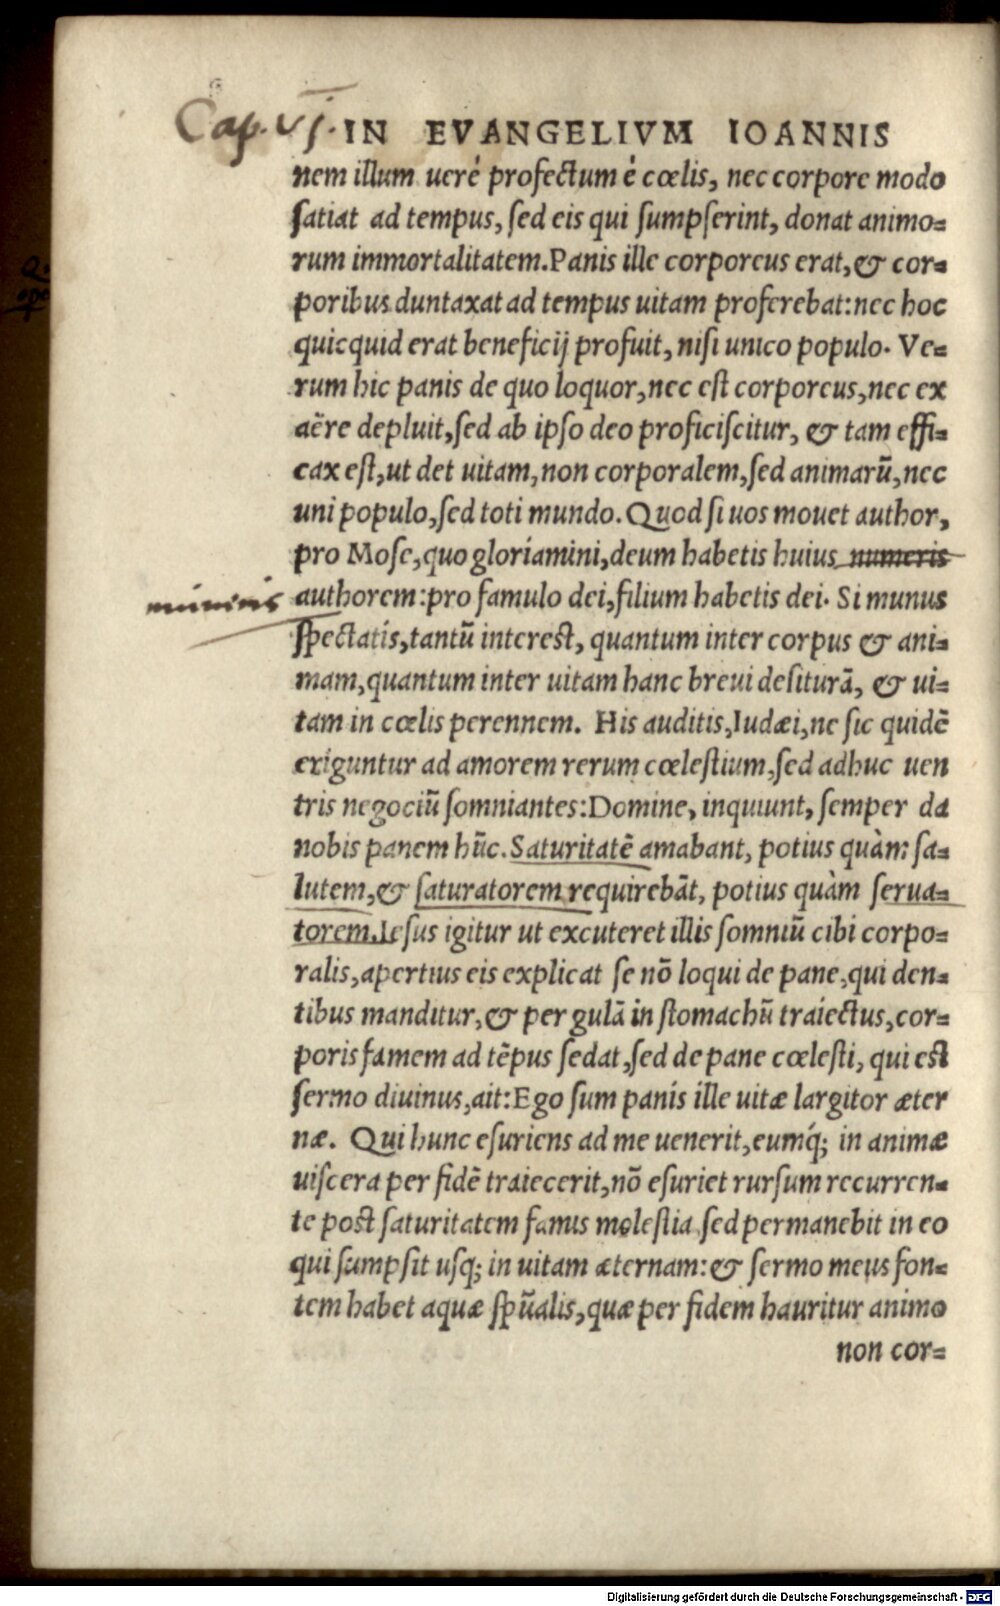 Cap. vj. IN EVANGELIVM IOANNIS
nem illum ueré profectum é cœlis, nec corpore modo
satiat ad tempus, sed eis qui sumpserint, donat animo=
rum immortalitatem. Panis ille corporeus erat, & cor=
poribus duntaxat ad tempus uitam proferebat: nec hoc
quicquid erat beneficij profuit, nisi unico populo. Ve=
rum hic panis de quo loquor, nec est corporeus, nec ex
aëre depluit, sed ab ipso deo proficiscitur, & tam effi=
cax est, ut det uitam, non corporalem, sed animarū, nec
uni populo, sed toti mundo. Quod si uos mouet author,
pro Mose, quo gloriamini, deum habetis huius numeris
muneris
authorem: pro famulo dei, filium habetis dei. Si munus
spectatis, tantū interest, quantum inter corpus & ani=
mam, quantum inter uitam hanc breui desiturā, & ui=
tam in cœlis perennem. His auditis, Iudæi, ne sic quidē
eriguntur ad amorem rerum cœlestium, sed adhuc uen
tris negociū somniantes: Domine, inquiunt, semper da
nobis panem hūc. Saturitatē amabant, potius quàm sa=
lutem, & saturatorem requirebāt, potius quàm serua=
torem. Iesus igitur ut excuteret illis somniū cibi corpo=
ralis, apertius eis explicat se nō loqui de pane, qui den=
tibus manditur, & per gulā in stomachū traiectus, cor=
poris famem ad tēpus sedat, sed de pane cœlesti, qui est
sermo diuinus, ait: Ego sum panis ille uitæ largitor æter
næ. Qui hunc esuriens ad me uenerit, eumq́; in animæ
uiscera per fidē traiecerit, nō esuriet rursum recurren=
te post saturitatem famis molestia, sed permanebit in eo
qui sumpsit usq; in uitam æternam: & sermo meus fon=
tem habet aquæ sp̄ualis, quæ per fidem hauritur animo
non cor=
Digitalisierung gefördert durch die Deutsche Forschungsgemeinschaft - DFG